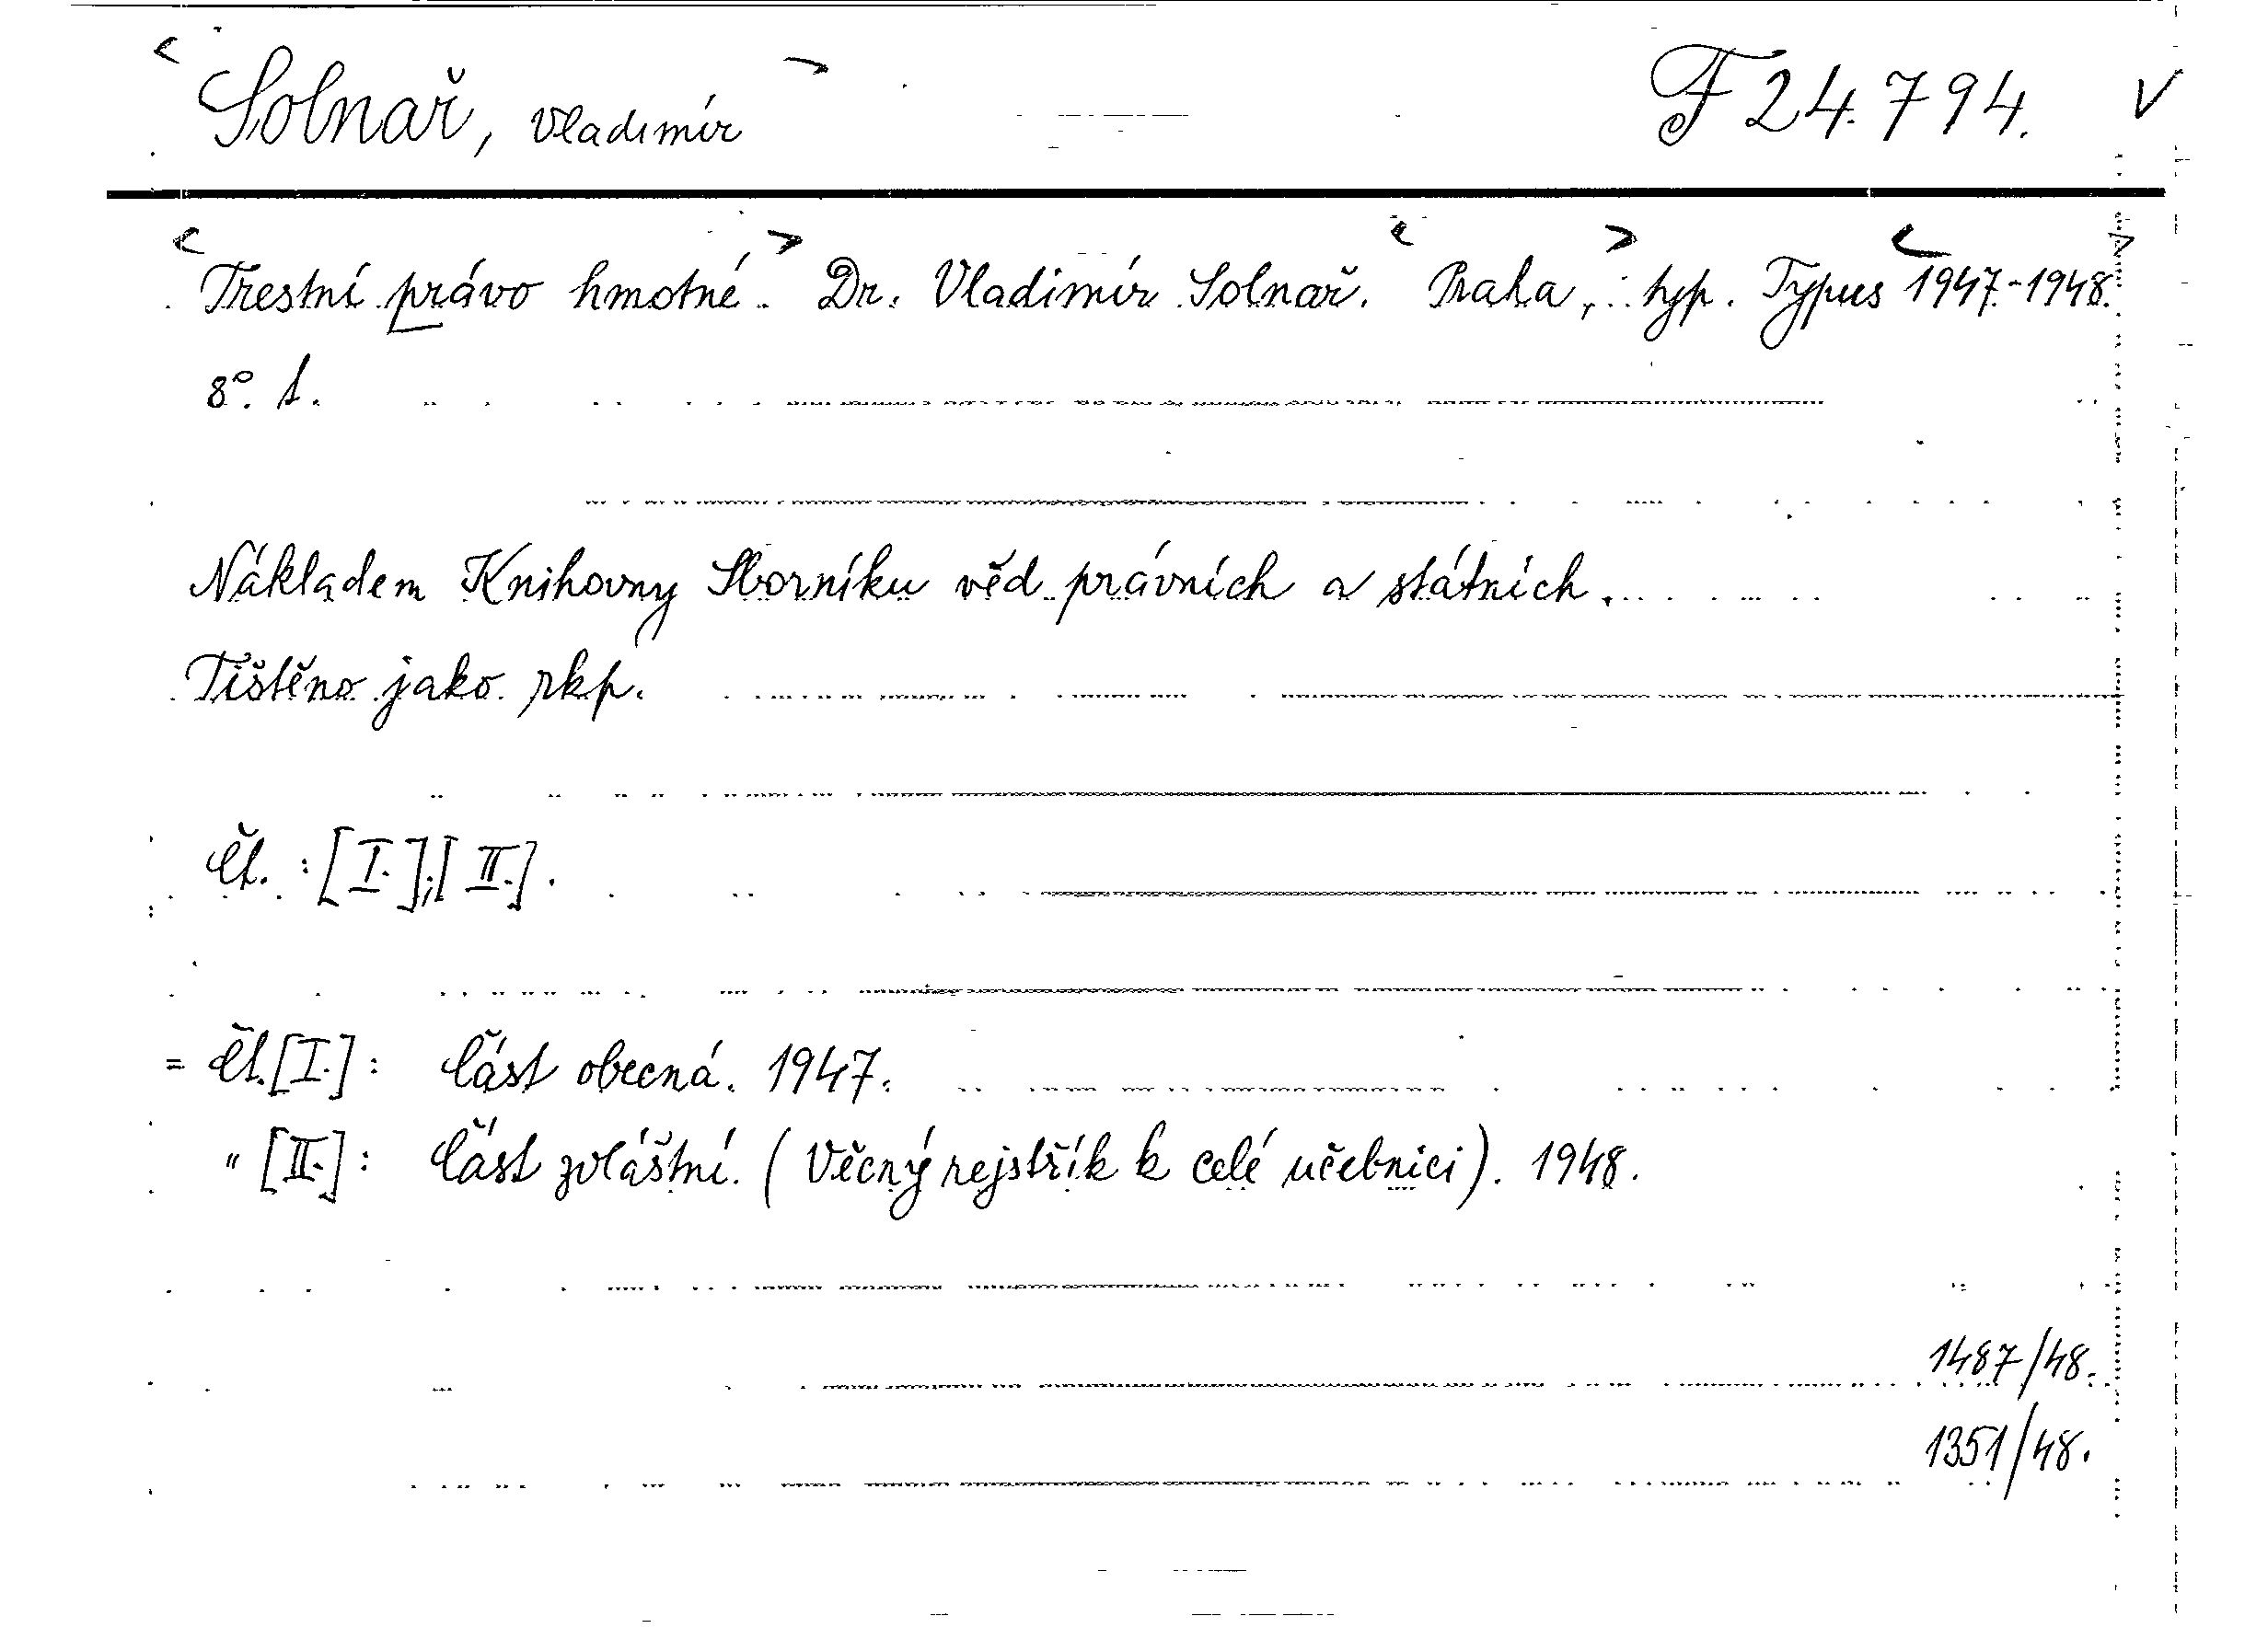 <Solnař, Vladimír> F 24.794. V
<Trestní právo hmotné.> Dr. Vladimír Solnař. <Praha,> typ. Typus <1947.-1948.>
8°. 1.
Nákladem Knihovny Sborníku věd právních a státních.
Tištěno jako rkp.
Čt. : [I.];[II.].
= Čt.[I.]: Část obecná. 1947.
" [II.]: Část zvláštní. (Věcný rejstřík k celé učebnici). 1948.
1487/48.
1351/48.